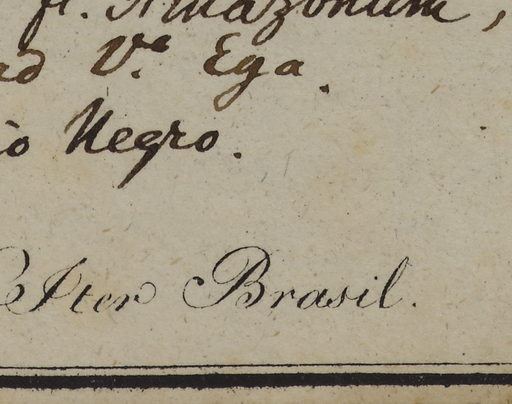 fl. Amazonum,
ad Vª Ega.
io Negro.
Iter Brasil.